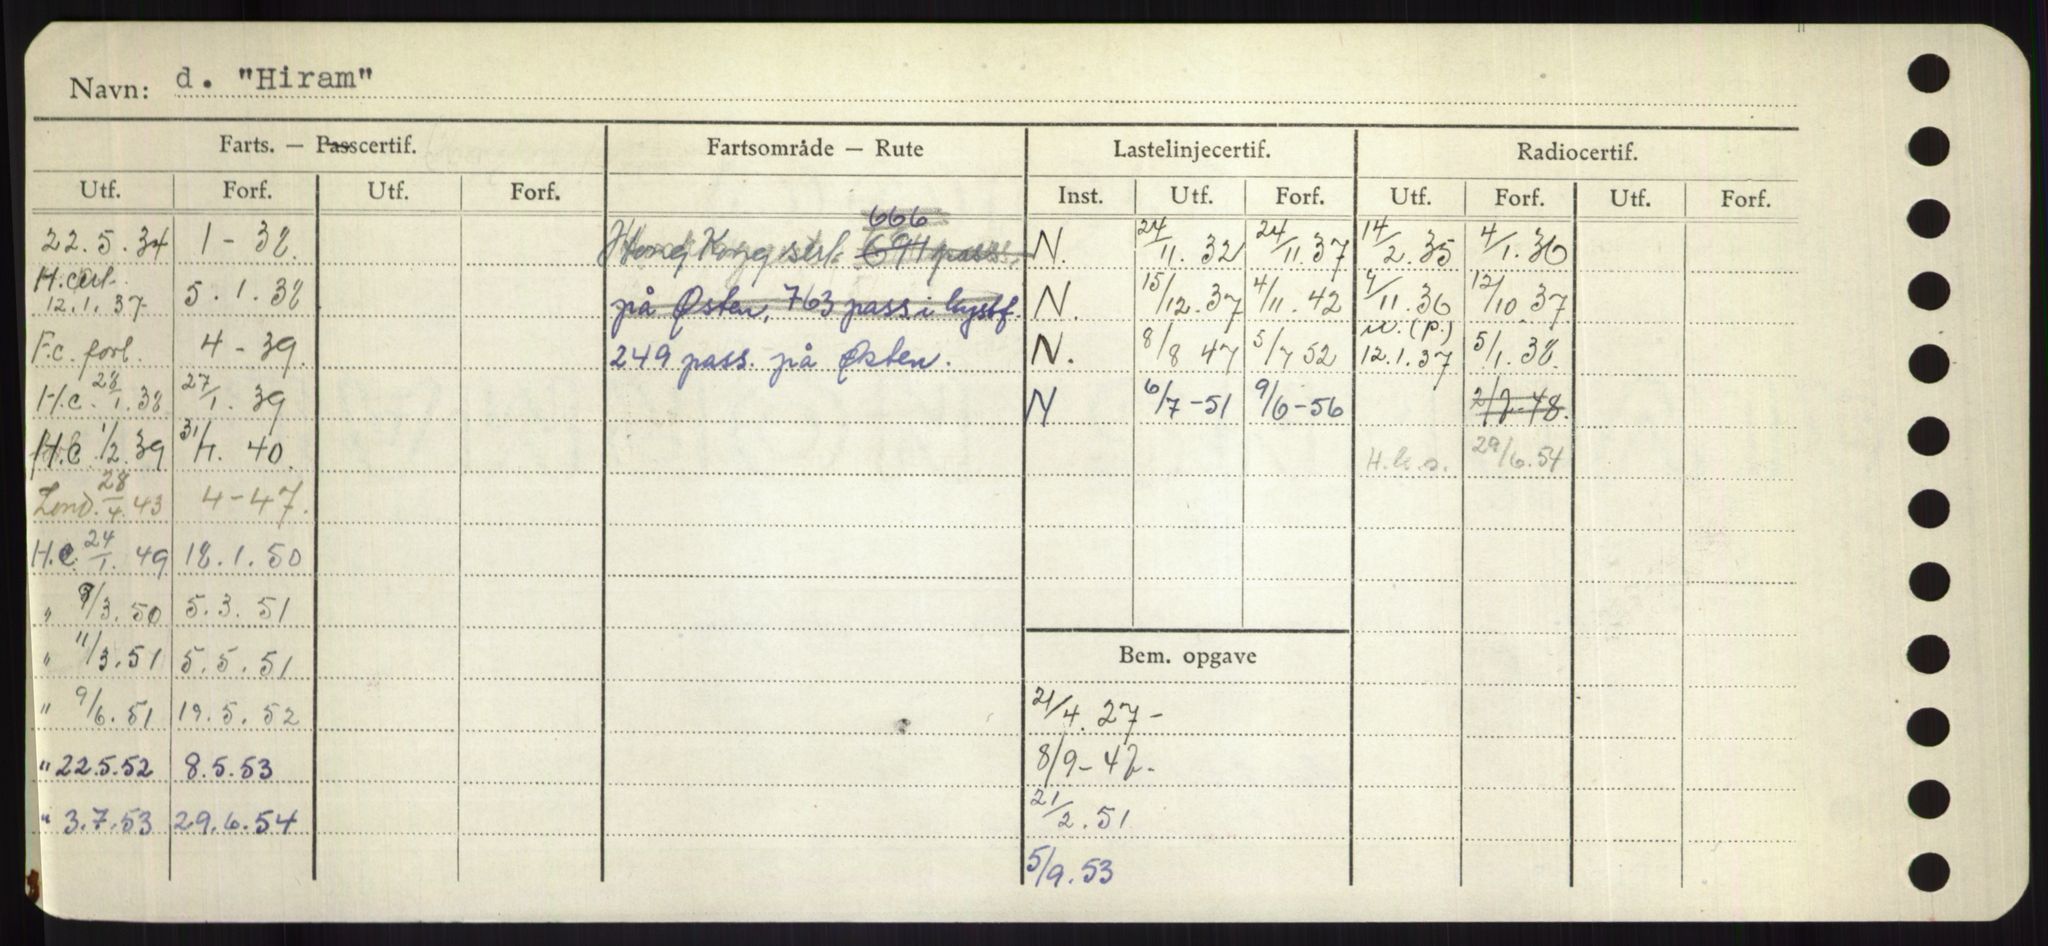 Navn: d. "Hiram"
Farts. — Passcertif. Fartsområde — Rute Lastelinjecertif. Radiocertif.
Utf. Forf. Utf. Forf. Inst. Utf. Forf. Utf. Forf. Utf. Forf.
666
22.5.34 1 - 38. Hong Kong 694 pass. N. 24/11. 32 24/11. 37 14/2. 35 4/1. 36
H.cert.
12.1.37 5.1.38 på Østen, 763 pass i kystf. N. 15/12. 37 4/11. 42 4/11. 36 12/10 37
F.c. forl. 4 - 39. 249 pass. på Østen. N. 8/8 47 5/7 52 12.1.37 5/1. 38.
H.c. 28/1. 38 27/1. 39 N 6/7 -51 9/6 -56 2/2-48.
H.C. 1/2. 39 31/1. 40. 29/6.54
Lond. 28/4. 43 4 - 47.
H.C. 24/1. 49 18.1.50
" 9/3. 50 5.3.51
" 11/3.51 5.5.51
Bem. opgave
" 9/6.51 19.5.52 21/4. 27 -
" 22.5.52 8.5.53 8/9 - 42 -
" 3.7.53 29.6.54 21/2. 51
5/9. 53